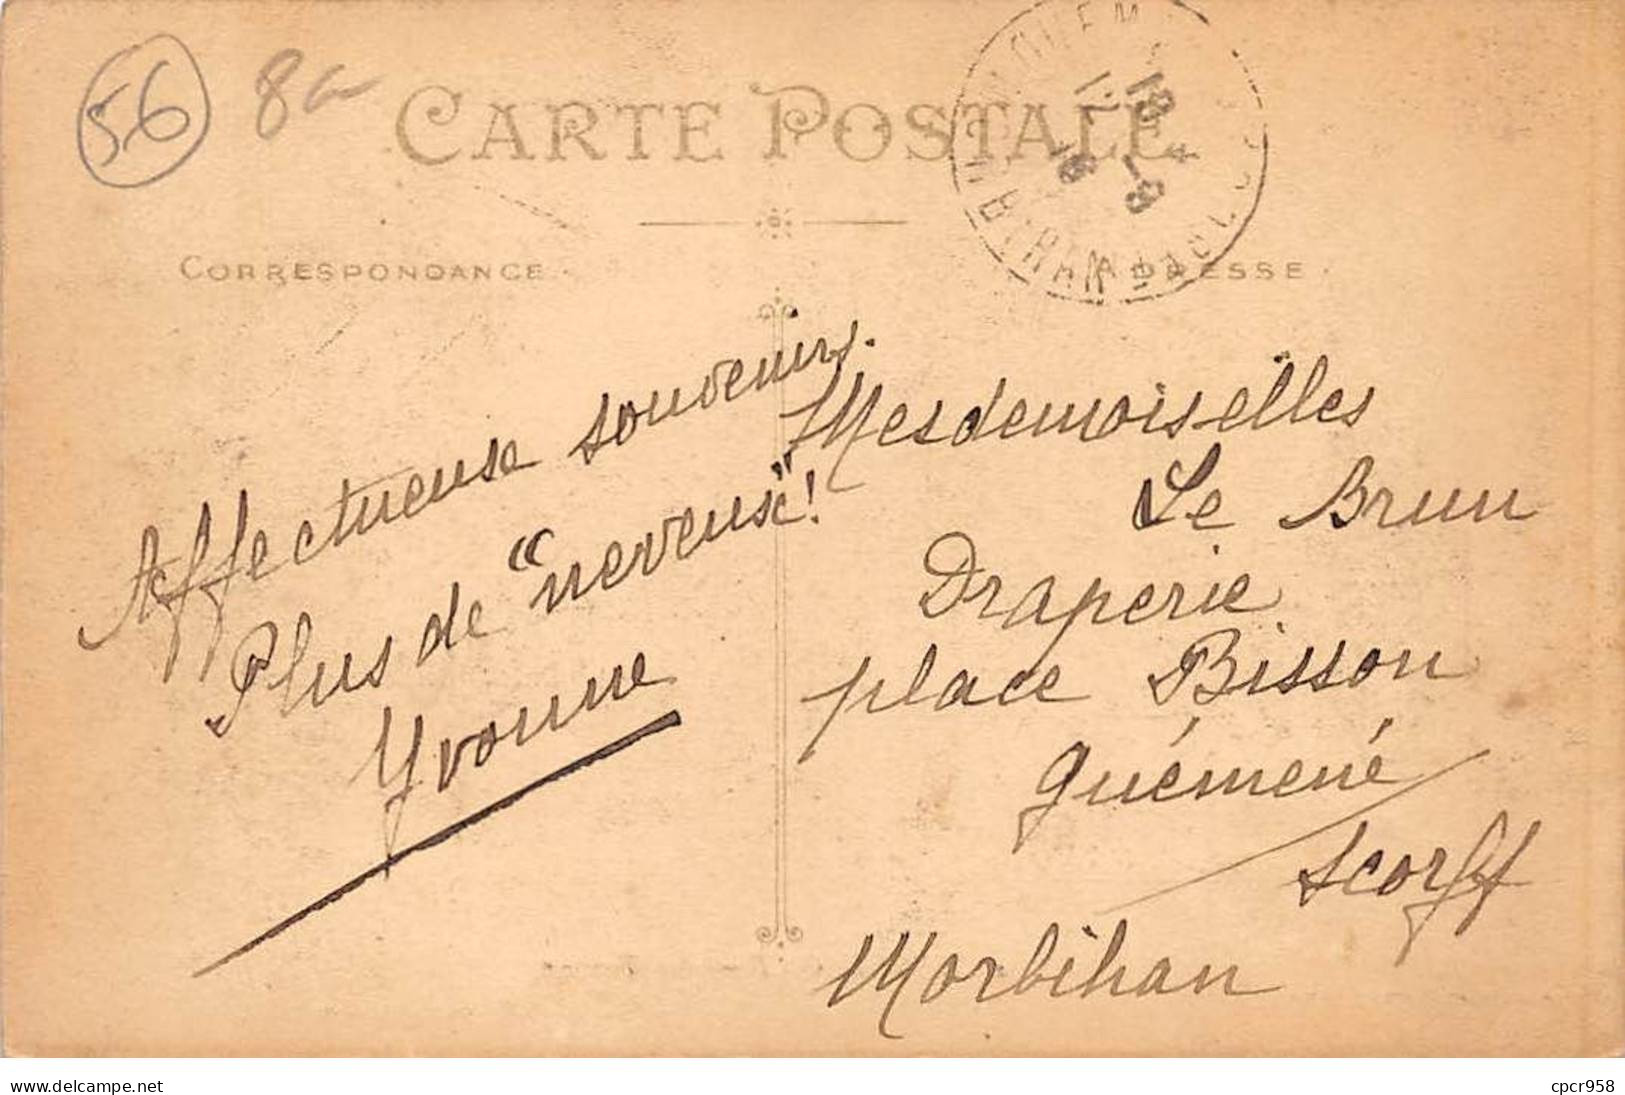 56
CARTE POSTALE
CORRESPONDANCE
ADRESSE
Affectueuse souvenirs.
Plus de "nerveuse"!
Yvonne
Mesdemoiselles
Le Brun
Draperie
place Bisson
Guémené
Scorff
Morbihan
www.delcampe.net
cpcr958